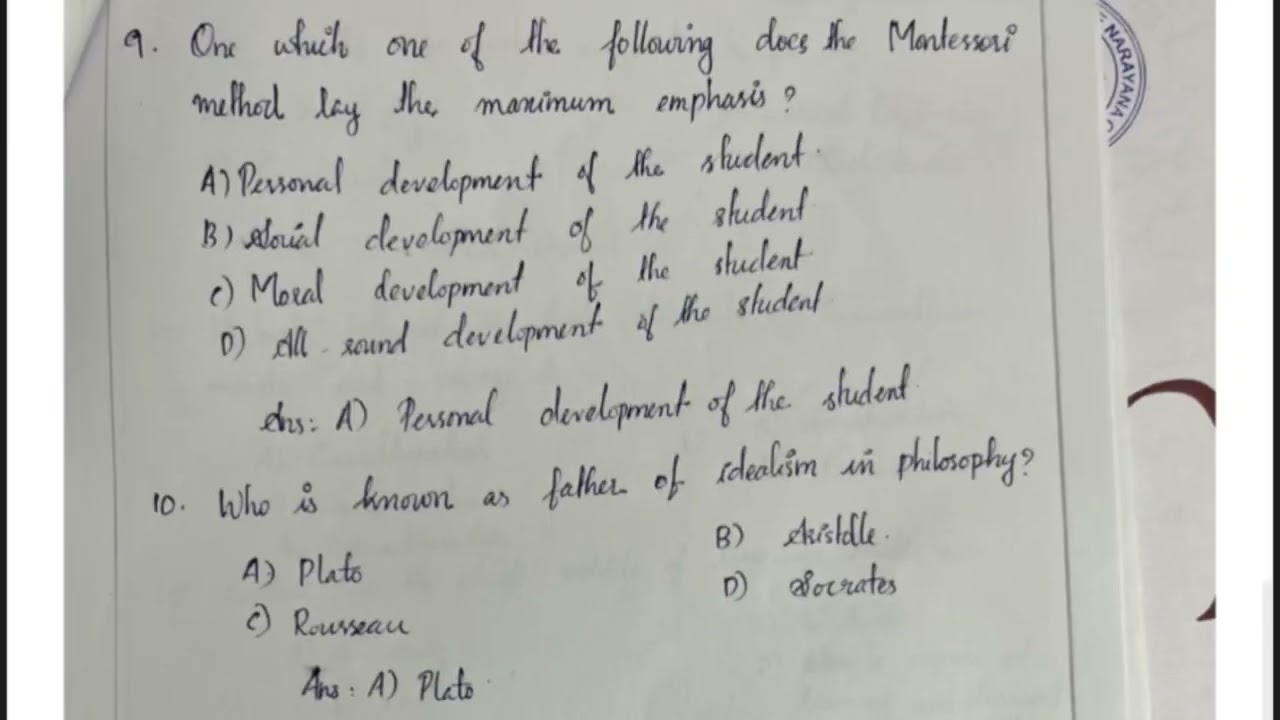 9. One which one of the following does the Montessori
method lay the maximum emphasis?
A) Personal development of the student.
B) Social development of the student
C) Moral development of the student
D) All round development of the student
Ans: A) Personal development of the student.
10. Who is known as father of idealism in philosophy?
A) Plato
B) Aristotle.
C) Rousseau
D) Socrates
Ans: A) Plato.
NARAYANA